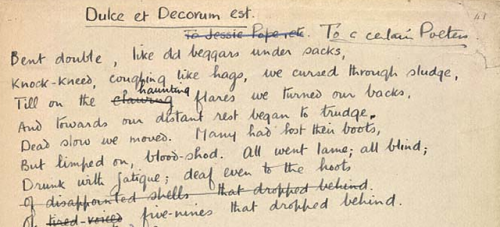 Dulce et Decorum est.
To Jessie Pope, etc. To a certain Poetess
41
Bent double, like old beggars under sacks,
Knock-kneed, coughing like hags, we cursed through sludge,
Till on the clawing haunting flares we turned our backs,
And towards our distant rest began to trudge.
Dead slow we moved. Many had lost their boots,
But limped on, blood-shod. All went lame; all blind;
Drunk with fatigue; deaf even to the hoots
Of disappointed shells that dropped behind.
Of tired-voiced five-nines that dropped behind.